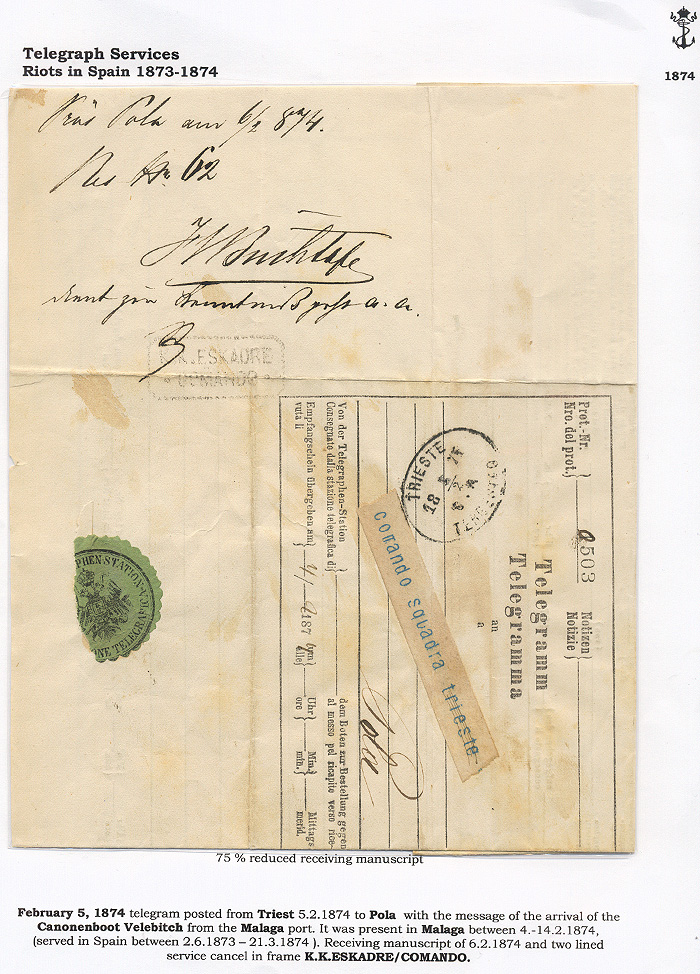 Telegraph Services
Riots in Spain 1873-1874
1874
Pola am 6/2 874.
Res No. 62
zur Kenntniß
K.K.ESKADRE
COMANDO
Prot.-Nr.
Nro. del prot.
2503
Notizen
Notizie
Telegramm
Telegramma
an
a
TRIESTE
comando squadra trieste
Pola
Von der Telegraphen-Station
Consegnato dalla stazione telegrafica di
dem Boten zur Bestellung gegen
al messo pel ricapito verso rice-
Empfangschein übergeben am
vuta li
187
um
alle
Uhr
ore
Min.
min.
Mittags
merid.
PHEN-STATION
NE TELEGRA
75 % reduced receiving manuscript
February 5, 1874 telegram posted from Triest 5.2.1874 to Pola with the message of the arrival of the
Canonenboot Velebitch from the Malaga port. It was present in Malaga between 4.-14.2.1874,
(served in Spain between 2.6.1873 – 21.3.1874 ). Receiving manuscript of 6.2.1874 and two lined
service cancel in frame K.K.ESKADRE/COMANDO.